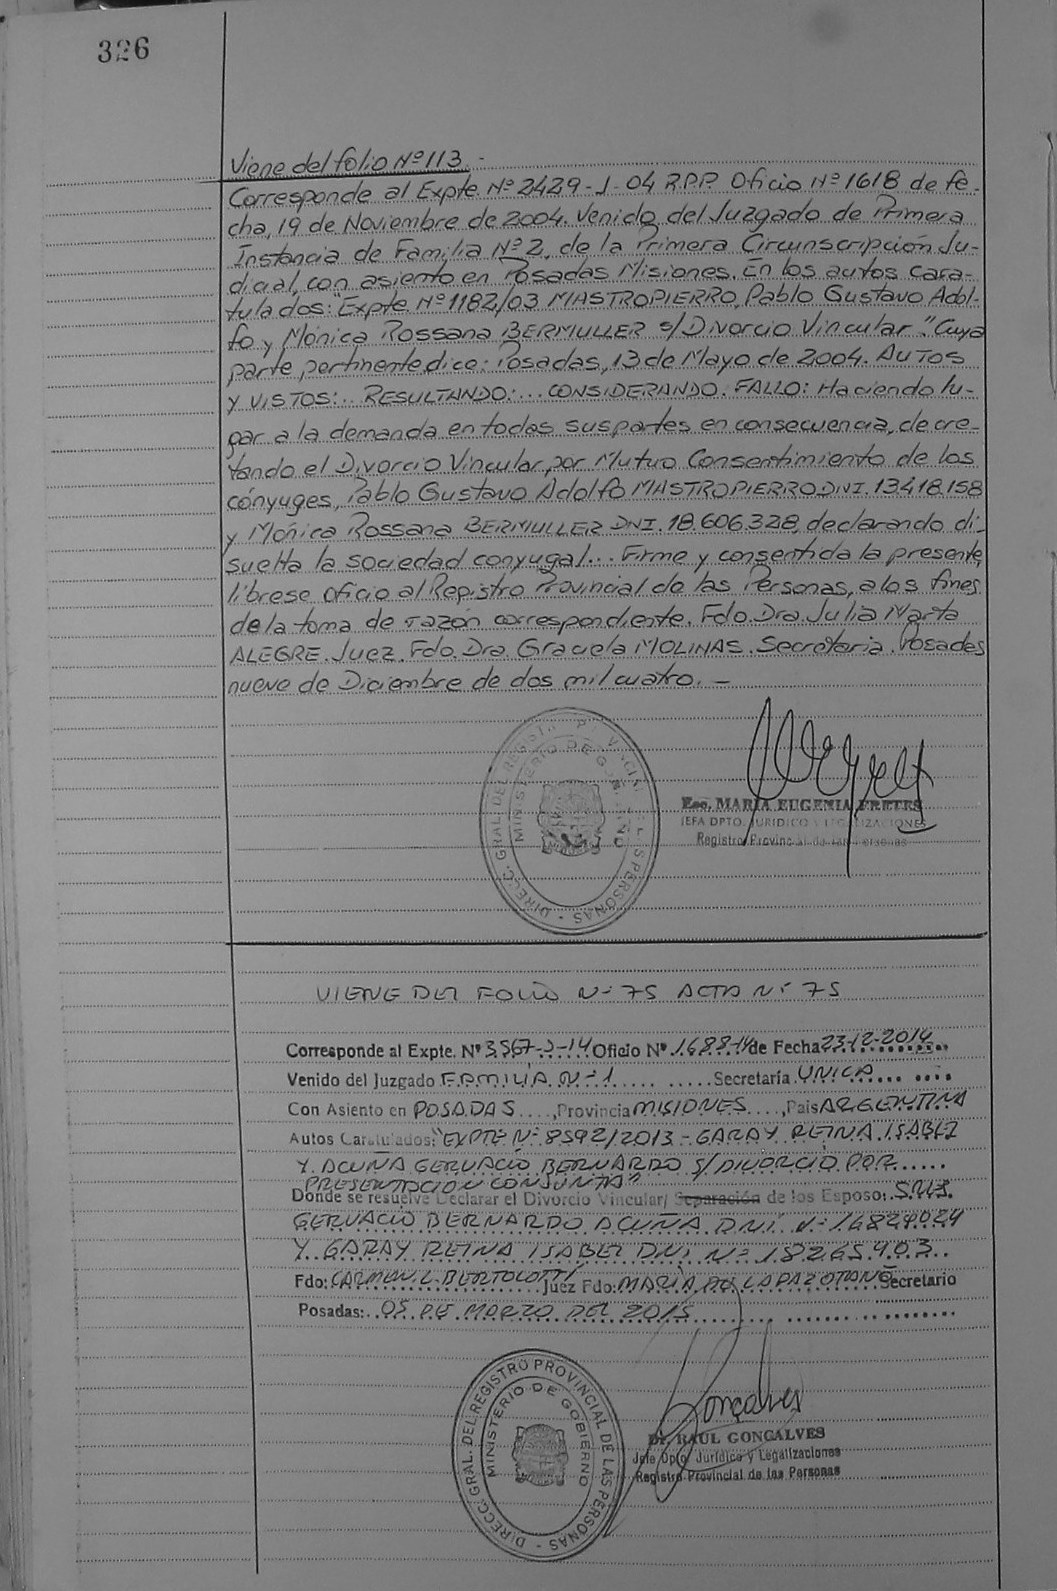 326
Viene del folio Nº 113.-
Corresponde al Expte. Nº 2429-J-04 R.P.P. Oficio Nº 1618 de fe-
cha, 19 de Noviembre de 2004. Venido del Juzgado de Primera
Instancia de Familia Nº 2, de la Primera Circunscripción Ju-
dicial, con asiento en Posadas Misiones. En los autos cara-
tulados: "Expte. Nº 1182/03 MASTROPIERRO, Pablo Gustavo Adol-
fo y Mónica Rossana BERMULLER s/Divorcio Vincular". Cuya
parte pertinente dice: Posadas, 13 de Mayo de 2004. AUTOS
Y VISTOS:.. RESULTANDO:... CONSIDERANDO. FALLO: Haciendo lu-
gar a la demanda en todas sus partes en consecuencia, decre-
tando el Divorcio Vincular por Mutuo Consentimiento de los
cónyuges, Pablo Gustavo Adolfo MASTROPIERRO DNI. 13.418.158
y Mónica Rossana BERMULLER DNI. 18.606.328, declarando di-
suelta la sociedad conyugal... Firme y consentida la presente,
líbrese oficio al Registro Provincial de las Personas, a los fines
de la toma de razón correspondiente. Fdo. Dra. Julia Marta
ALEGRE. Juez. Fdo. Dra. Graciela MOLINAS. Secretaria. Posadas
nueve de Diciembre de dos mil cuatro. -
DIRECC. GRAL. DEL REGISTRO PROVINCIAL DE LAS PERSONAS -
MINISTERIO DE GOBIERNO
Esc. MARIA EUGENIA FRETES
JEFA DPTO. JURIDICO Y LEGALIZACIONES
Registro Provincial de las Personas
VIENE DEL FOLIO Nº 75 ACTA Nº 75
Corresponde al Expte. Nº 3567-J-14 Oficio Nº 1688-14 de Fecha 23-12-2014
Venido del Juzgado FAMILIA Nº 1 Secretaría UNICA
Con Asiento en POSADAS, Provincia MISIONES, País ARGENTINA
Autos Caratulados: "EXPTE Nº 8592/2013 - GARAY REINA ISABEL
Y ACUÑA GERVACIO BERNARDO S/DIVORCIO POR
PRESENTACION CONJUNTA"
Donde se resuelve Declarar el Divorcio Vincular/ Separación de los Esposo: SRES.
GERVACIO BERNARDO ACUÑA D.N.I. Nº 16829024
Y GARAY REINA ISABEL D.N.I. Nº 18.265.903
Fdo: CARMEN L. BERTOLOTTI Juez Fdo: MARIA DE LA PAZ OTAÑO Secretario
Posadas: 05 DE MARZO DEL 2015
DIRECC. GRAL. DEL REGISTRO PROVINCIAL DE LAS PERSONAS -
MINISTERIO DE GOBIERNO
Gonçalves
Dr. RAUL GONCALVES
Jefe Dpto. Jurídico y Legalizaciones
Registro Provincial de las Personas